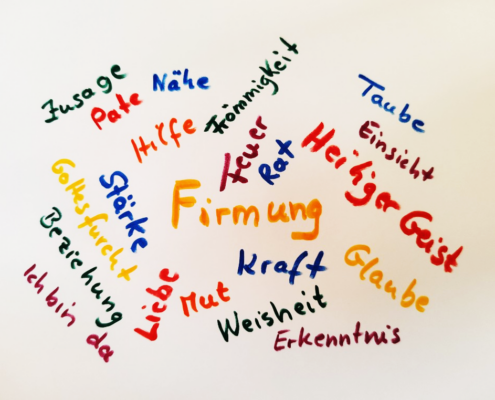 Zusage
Pate
Nähe
Frömmigkeit
Hilfe
Feuer
Rat
Taube
Einsicht
Heiliger Geist
Gottesfurcht
Stärke
Firmung
Beziehung
Ich bin da
Liebe
Mut
Kraft
Weisheit
Glaube
Erkenntnis